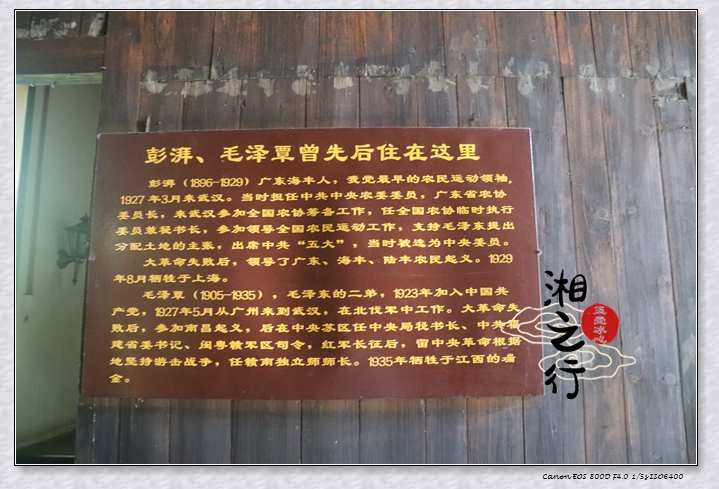 彭湃、毛泽覃曾先后住在这里
彭湃（1896-1929）广东海丰人，我党最早的农民运动领袖，
1927年3月来武汉。当时担任中共中央农委委员，广东省农协
委员长，来武汉参加全国农协筹备工作，任全国农协临时执行
委员兼秘书长，参加领导全国农民运动工作，支持毛泽东提出
分配土地的主张，出席中共“五大”，当时被选为中央委员。
大革命失败后，领导了广东、海丰、陆丰农民起义。1929
年8月牺牲于上海。
毛泽覃（1905-1935），毛泽东的二弟，1923年加入中国共
产党，1927年5月从广州来到武汉，在北伐军中工作。大革命失
败后，参加南昌起义，后在中央苏区任中央局秘书长、中共福
建省委书记、闽粤赣军区司令，红军长征后，留中央革命根据
地坚持游击战争，任赣南独立师师长。1935年牺牲于江西的瑞
金。
湘之行
玉壶冰心
Canon EOS 800D F4.0 1/5s ISO6400